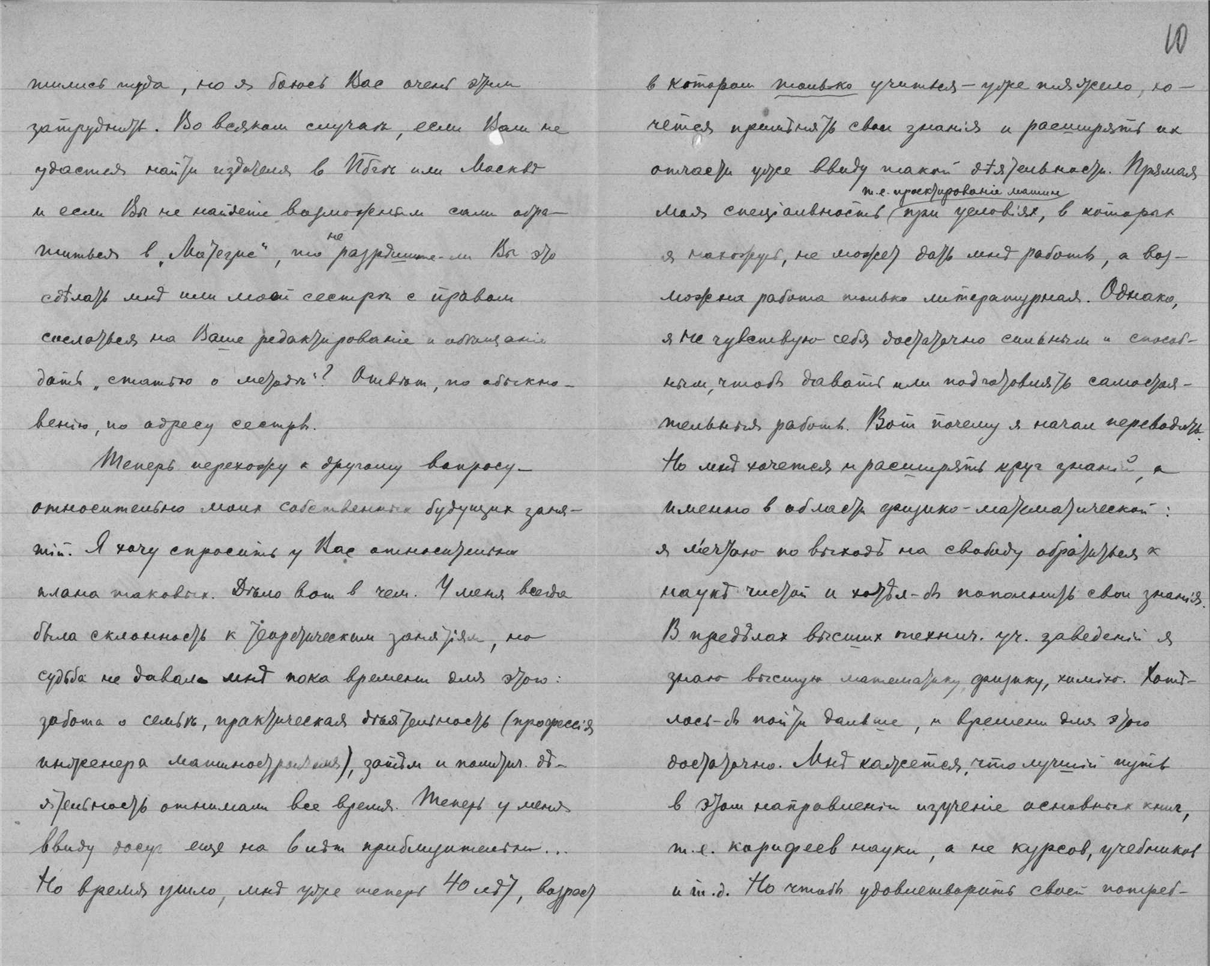 тились туда, но я боюсь Вас очень этим
затруднить. Во всяком случае, если Вам не
удастся найти издателя в Пбге или Москвѣ
и если Вы не найдете возможным сами обра-
титься в „Матезис", то не разрѣшите-ли Вы это
сдѣлать мнѣ или моей сестре с правом
сослаться на Ваше редактирование и обещание
дать „статью о методѣ"? Отвѣт, по обыкно-
вению, по адресу сестры.
Теперь перехожу к другому вопросу –
относительно моих собственных будущих заня-
тий. Я хочу спросить у Вас относительно
плана таковых. Дѣло вот в чем. У меня всегда
была склонность к теоретическим занятіям, но
судьба не давала мнѣ пока времени для этого:
забота о семье, практическая дѣятельность (профессія
инженера машиностроителя), затѣм и политич. дѣ-
ятельность отнимали все время. Теперь у меня
ввиду досуг еще на 6 лѣт приблизительно...
Но время ушло, мнѣ уже теперь 40 лѣт, возраст
10
в котором только учиться – уже тяжело, хо-
чется примѣнять свои знанія и расширять их
отчасти уже ввиду такой дѣятельности. Прямая
т.е. проектирование машин
моя спеціальность при условіях, в которых
я нахожусь, не может дать мнѣ работы, а воз-
можна работа только литературная. Однако,
я не чувствую себя достаточно сильным и способ-
ным, чтобы давать или подготовлять самостоя-
тельныя работы. Вот почему я начал переводить.
Но мнѣ хочется и расширять круг знаний, а
именно в области физико-математической:
я мечтаю по выходѣ на свободу обратиться к
наукѣ чистой и хотѣл-бы пополнить свои знанія.
В предѣлах высших технич. уч. заведеній я
знаю высшую математику, физику, химію. Хотѣ-
лось-бы пойти дальше, и времени для этого
достаточно. Мнѣ кажется, что лучшій путь
в этом направлении изучение основных книг,
т.е. корифеев науки, а не курсов, учебников
и т.д. Но чтобы удовлетворить своей потреб-